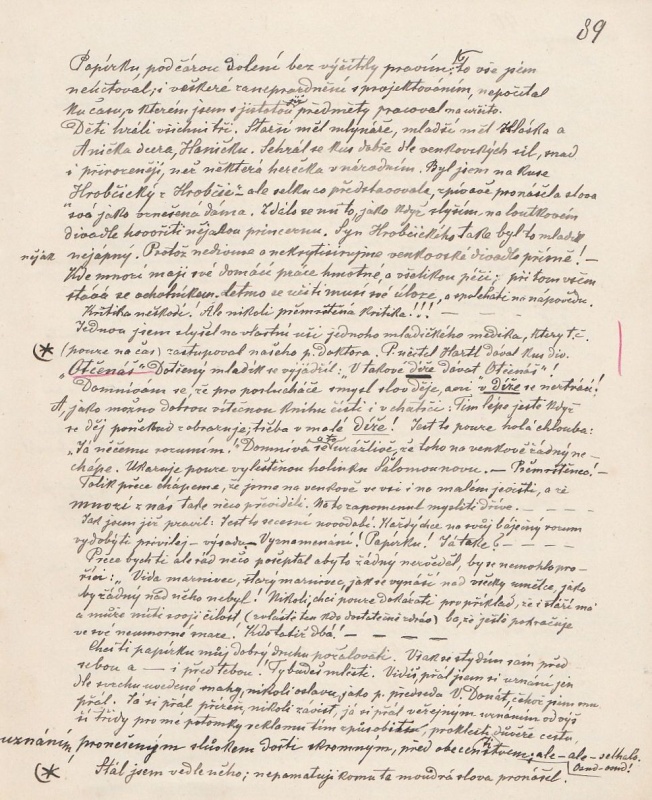 89
Papírku, pod čárou dolení bez výčitky pravím: To vše jsem
neúčtoval, i veškeré zaneprázdnění s projektováním, nepočítal
ku času, v kterém jsem s jistotou předměty pracoval na určito.
Děti hráli všichni tři. Starší měl mlynáře, mladší měl Hloska a
Anička dcera, Haničku. Sehrál se kus dobře dle venkovských sil, snad
i přirozeněji, než některá herečka v národním. Byl jsem na kuse
Hrobčický z Hrobčic" ale selku co představovala, zpívavě pronášela slova
svá jako vznešená dáma. Zdálo se mi to, jako když slyším, na loutkovém
divadle hovořiti nějakou princeznu. Syn Hrobčického také byl to mladík
nějak nejápný. Protož nedivme a nekrytisirujme venkovské divadlo přísně! —
Kde mnozí mají své domácí práce hmotné a všelikou péči; při tom všem
stává se ochotníkem. Letmo se učiti musí své úloze, a spoléhati na nápovědu.
Kritika neškodí! Ale nikoli přemrštěná kritika!!! — — —
Jednou jsem slyšel na vlastní uši jednoho mladičkého medika, který t.č.
(* (pouze na čas) zastupoval našeho p. doktora. P. učitel Hartl dával kus div.
„Otčenáš" Dotičený mladík se vyjádřil: „V takové díže dávat Otčenáš"!
Domnívám se, že pro posluchače smysl slov děje, ani v díže se neztrácí!
A, jako možno dobrou vítečnou knihu čísti i v chatrči. Tím lépe jestě když
se děj poněkud zobrazuje; třeba v malé díže! Jest to pouze holá chlouba:
„Já něčemu rozumím!" Domnívá se ale urážlivě, že toho na venkově žádný ne-
chápe. Ukazuje pouze vyleštěnou holínku Šalomounovu. — Přemrštěnec! —
Tolik přece chápeme, že jsme na venkově ve vsi i na malém jevišti, a že
mnozí z nás také něco převiděli. Na to zapomenul mysliti dříve. — — —
Jak jsem již pravil: Jest to secesní novodobí. Každý chce na svůj báječný rozum
vydobýti privilej — výsadu — Vyznamenání! Papírku! Já také? — — —
Přece bych ti ale rád něco pošeptal aby to žádný nevěděl, by se nemohlo pro-
říci: „Vida marnivec, starý marnivec, jak se vynáší nad všecky umělce, jako
by žádný nad něho nebyl! Nikoli, chci pouze dokázati pro příklad, že i stáří má
a může míti svoji čilost (zvláště ten kdo dostatečně zdráv) ba, že ještě pokračuje
ve své neúmorné snaze. Kdo totiž dbá! — — — —
Chci ti papírku můj dobrý druhu požalovati. Však se stydím sám před
sebou a — i před tebou! Ty budeš mlčeti. Vidíš, přál jsem si uznání jen
dle svrchu uvedené snahy, nikoli oslavu, jako p. předseda V. Donát, čehož jemu mu
přál. Já si přál příčin, nikoli závist, já si přál veřejným uznáním od vý-
ší třídy pro mé potomky reklamu tím způsobiti, prokletí důvěře cestu,
uznáním, proneseným slůvkem dosti skromným, před obecenstvem, ale — ale — selhalo.
Osud — osud!
(* Stál jsem vedle něho; nepamatuji komu ta moudrá slova pronášel.